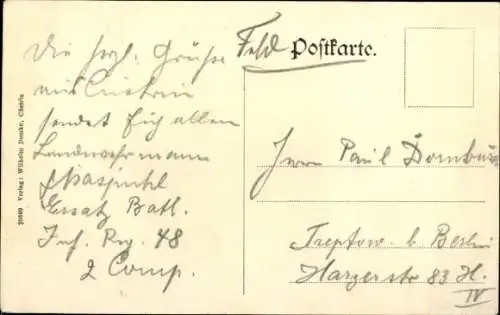 Die herzl. Grüße
aus Cüstrin
sendet Euch allen
Landwehrmann
Ersatz Batl.
Inf. Reg. 48
2 Comp.
20660 Verlag: Wilhelm Cüstrin
Feld Postkarte.
Herrn Paul
Treptow b Berlin
Harzerstr 83 H.
IV